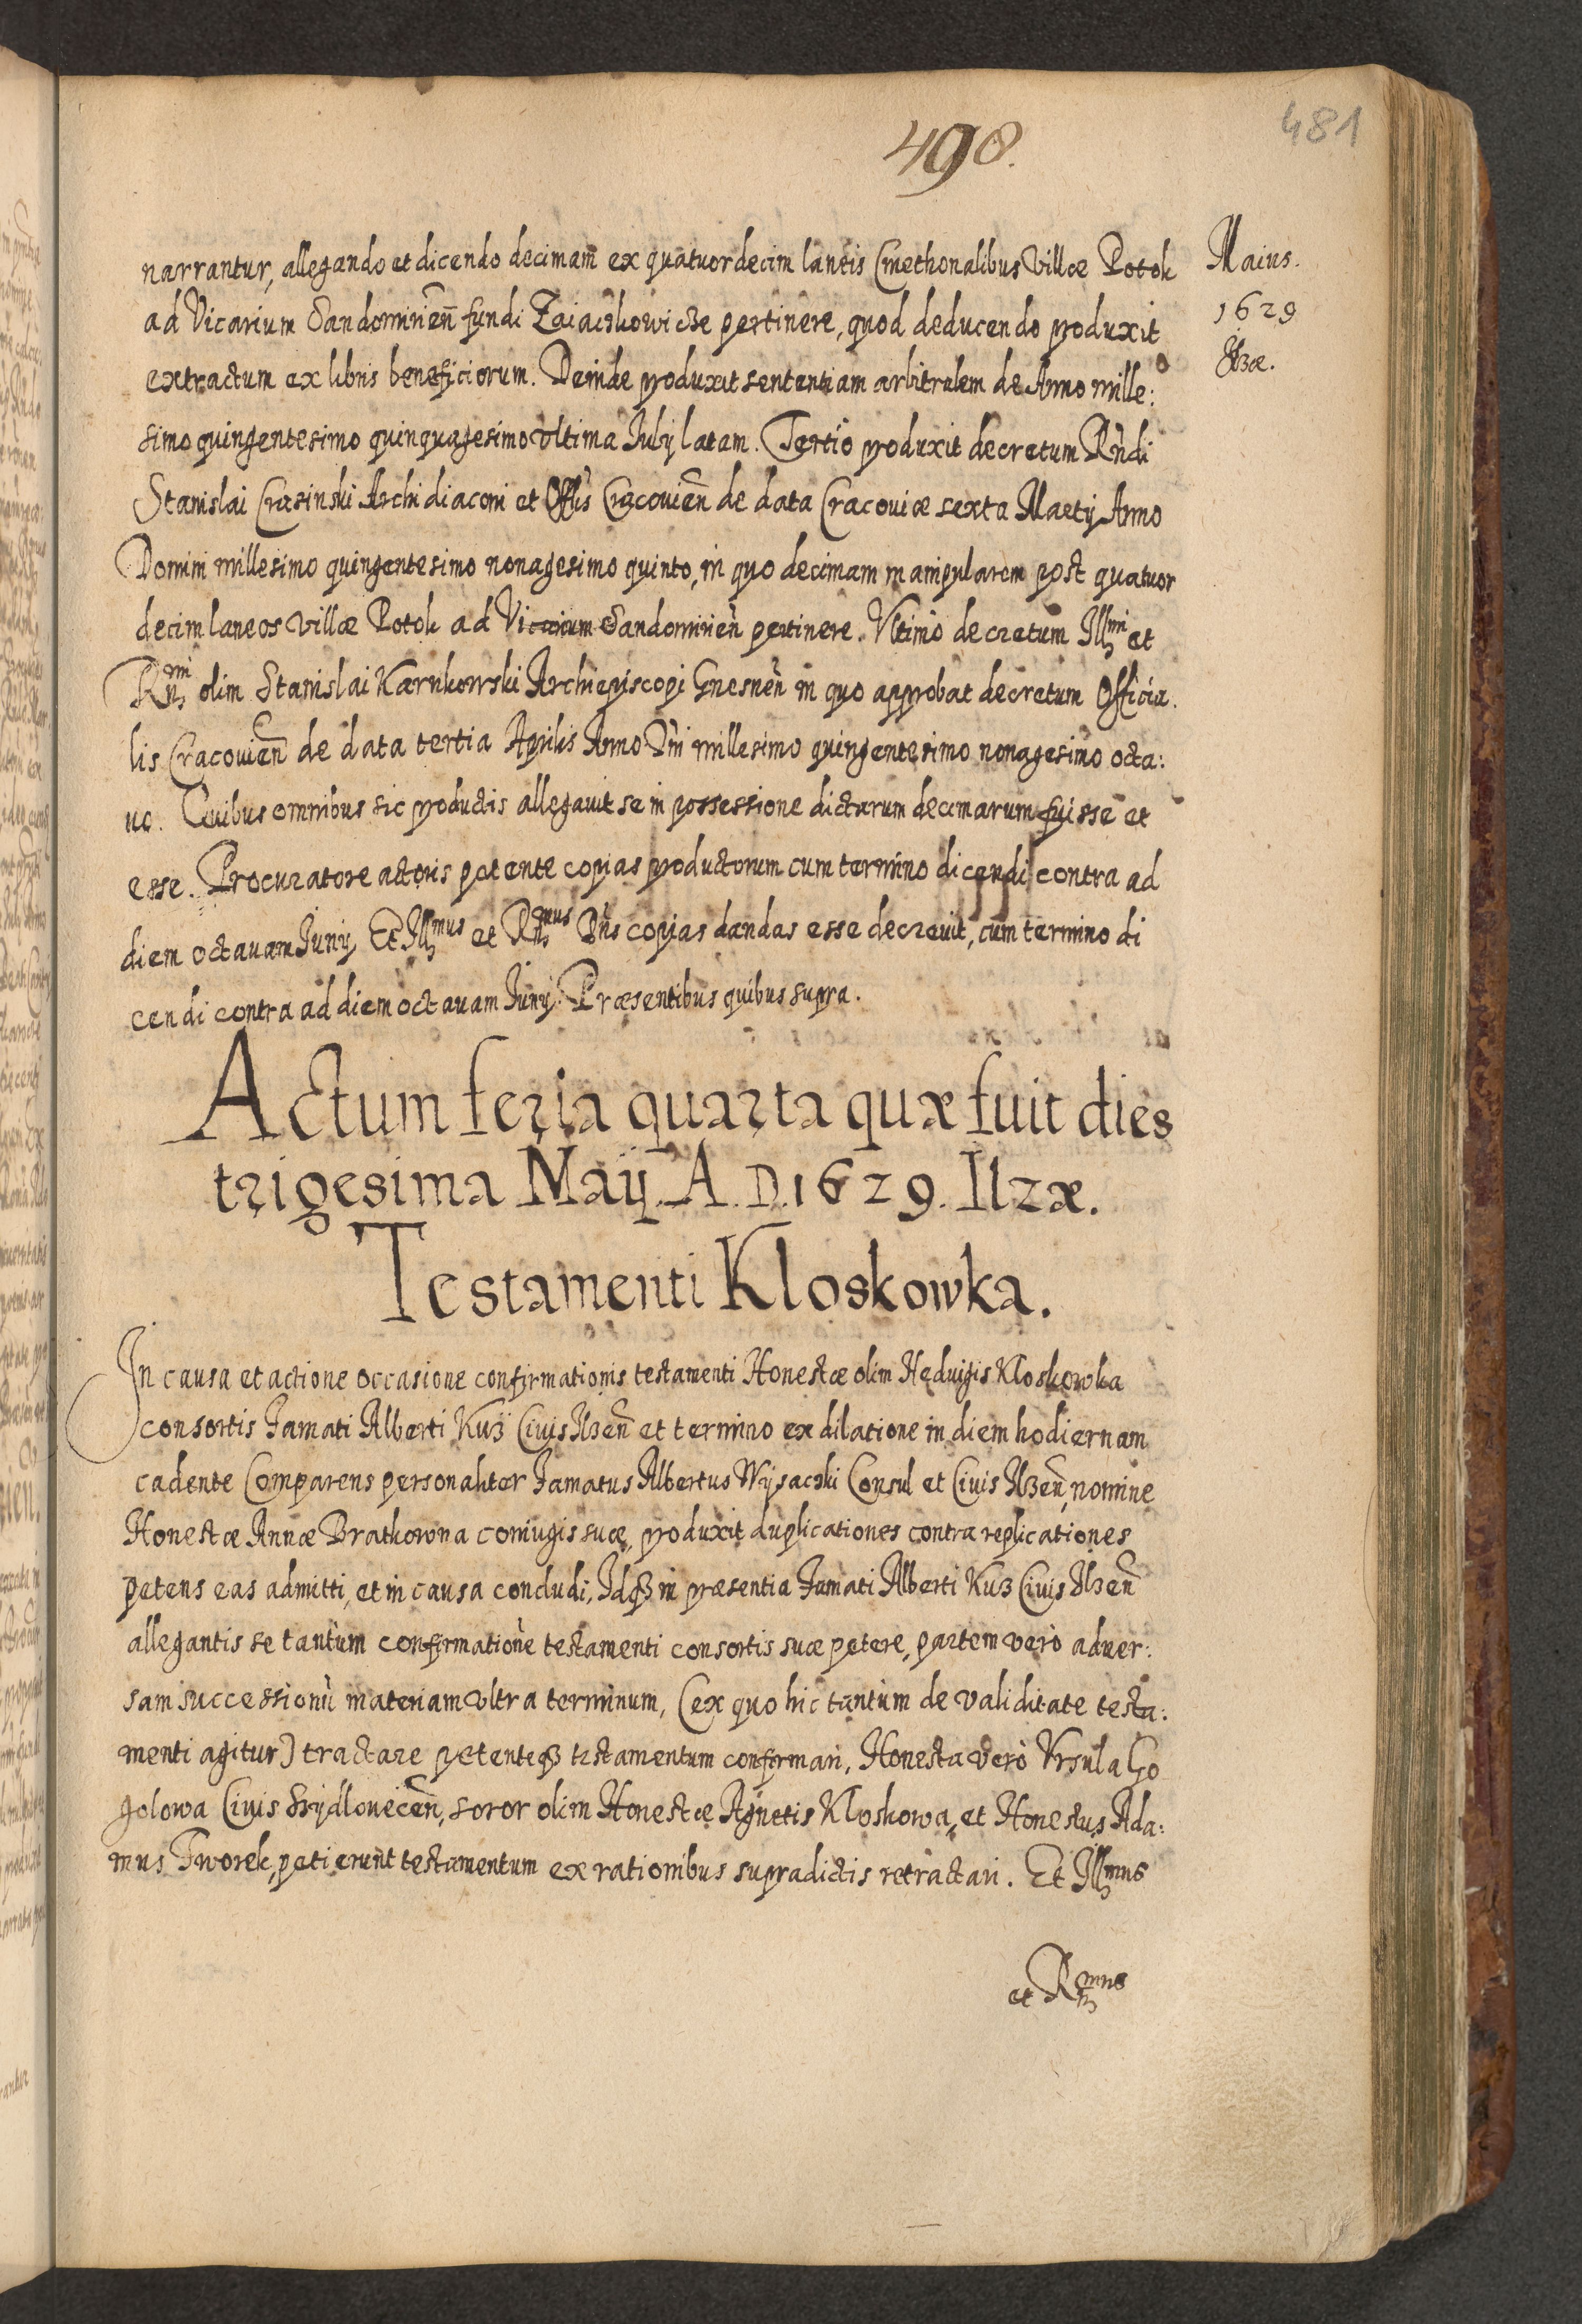 481
498.
Maius.
1629
Ilzæ.
narrantur, allegando et dicendo decimam̄ ex quatuordecim laneis Cmethonalibus villæ Potok
ad Vicarium Sandomirien̄ fundi Zaiaczkowicze pertinere, quod deducendo produxit
extractum ex libris beneficiorum. Deinde produxit sententiam arbitralem de Anno mille:
simo quingentesimo quinquagesimo vltima Iulij latam. Tertio produxit decretum Rndi
Stanislai Crasinski Archidiaconi et Offlis Cracouien̄ de data Cracouiæ sexta Maetij Anno
Domini millesimo quingentesimo nonagesimo quinto, in quo decimam manipularem post quatuor
decim laneos villæ Potok ad Vicarium Sandomirien̄ pertinere. Vltimò decretum Illmi et
Rmi olim Stanislai Karnkowski Archiepiscopi Gnesnen̄ in quo approbat decretum Officia.
lis Cracouien̄ de data tertia Aprilis Anno Dni millesimo quingentesimo nonagesimo octa:
uo. Quibus omnibus sic productis allegauit se in possessione dictarum decimarum fuisse et
esse. Procuratore actoris petente copias productorum cum termino dicendi contra ad
diem octauam Iunij Et Illmus et Rmus Dns copias dandas esse decreuit, cum termino di
cendi contra ad diem octauam Iunij. Præsentibus quibus supra.
Actum feria quarta quæ fuit dies
trigesima Maij. A. D. 1629. Ilzæ.
Testamenti Kloskowka.
In causa et actione occasione confirmationis testamenti Honestæ olim Heduigis Kloskowka
consortis Famati Alberti Kuz Ciuis Ilzen̄ et termino ex dilatione in diem hodiernam
cadente Comparens personaliter Famatus Albertus Wysaczki Consul et Ciuis Ilzen̄, nomine
Honestæ Annæ Bratkowna coniugis suæ, produxit duplicationes contra replicationes
petens eas admitti, et in causa concludi, Idqȝ in præsentia Famati Alberti Kuz Ciuis Ilzen̄
allegantis se tantùm confirmationē testamenti consortis suæ petere, partem verò aduer:
sam successionū materiam vltra terminum, (ex quo hic tantùm de validitate testa:
menti agitur) tractare petenteqȝ testamentum confirmari, Honesta verò Vrsula Go
golowa Ciuis Szydlouecen̄, soror olim Honestæ Agnetis Kloskowa, et Honestus Ada:
mus Tworek, petierunt testamentum ex rationibus supradictis retractari. Et Illmus
et Rmus